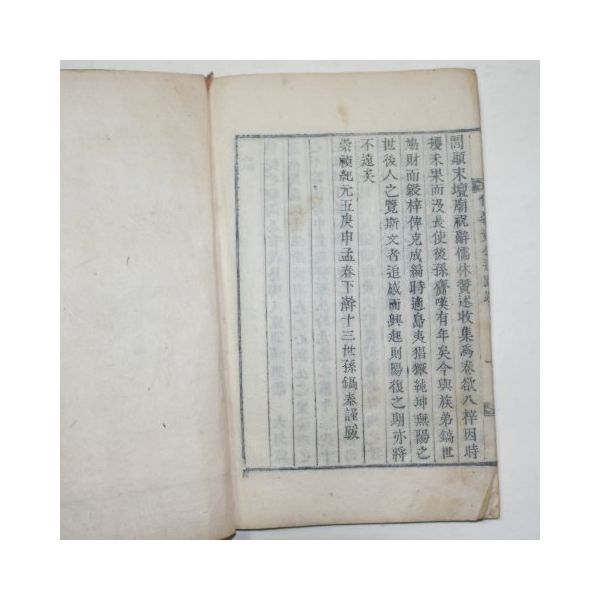 閭顚末壇廟祝辭儒林贊述收集爲卷欲入梓因時
擾未果而没長使後孫齎嘆有年矣今與族弟鎬世
鳩財而鋟梓俾克成編時適島夷猖獗純坤無陽之
世後人之覽斯文者追感而興起則陽復之期亦將
不遠矣
崇禎紀元五庚申孟春下澣十三世孫鎬泰謹跋